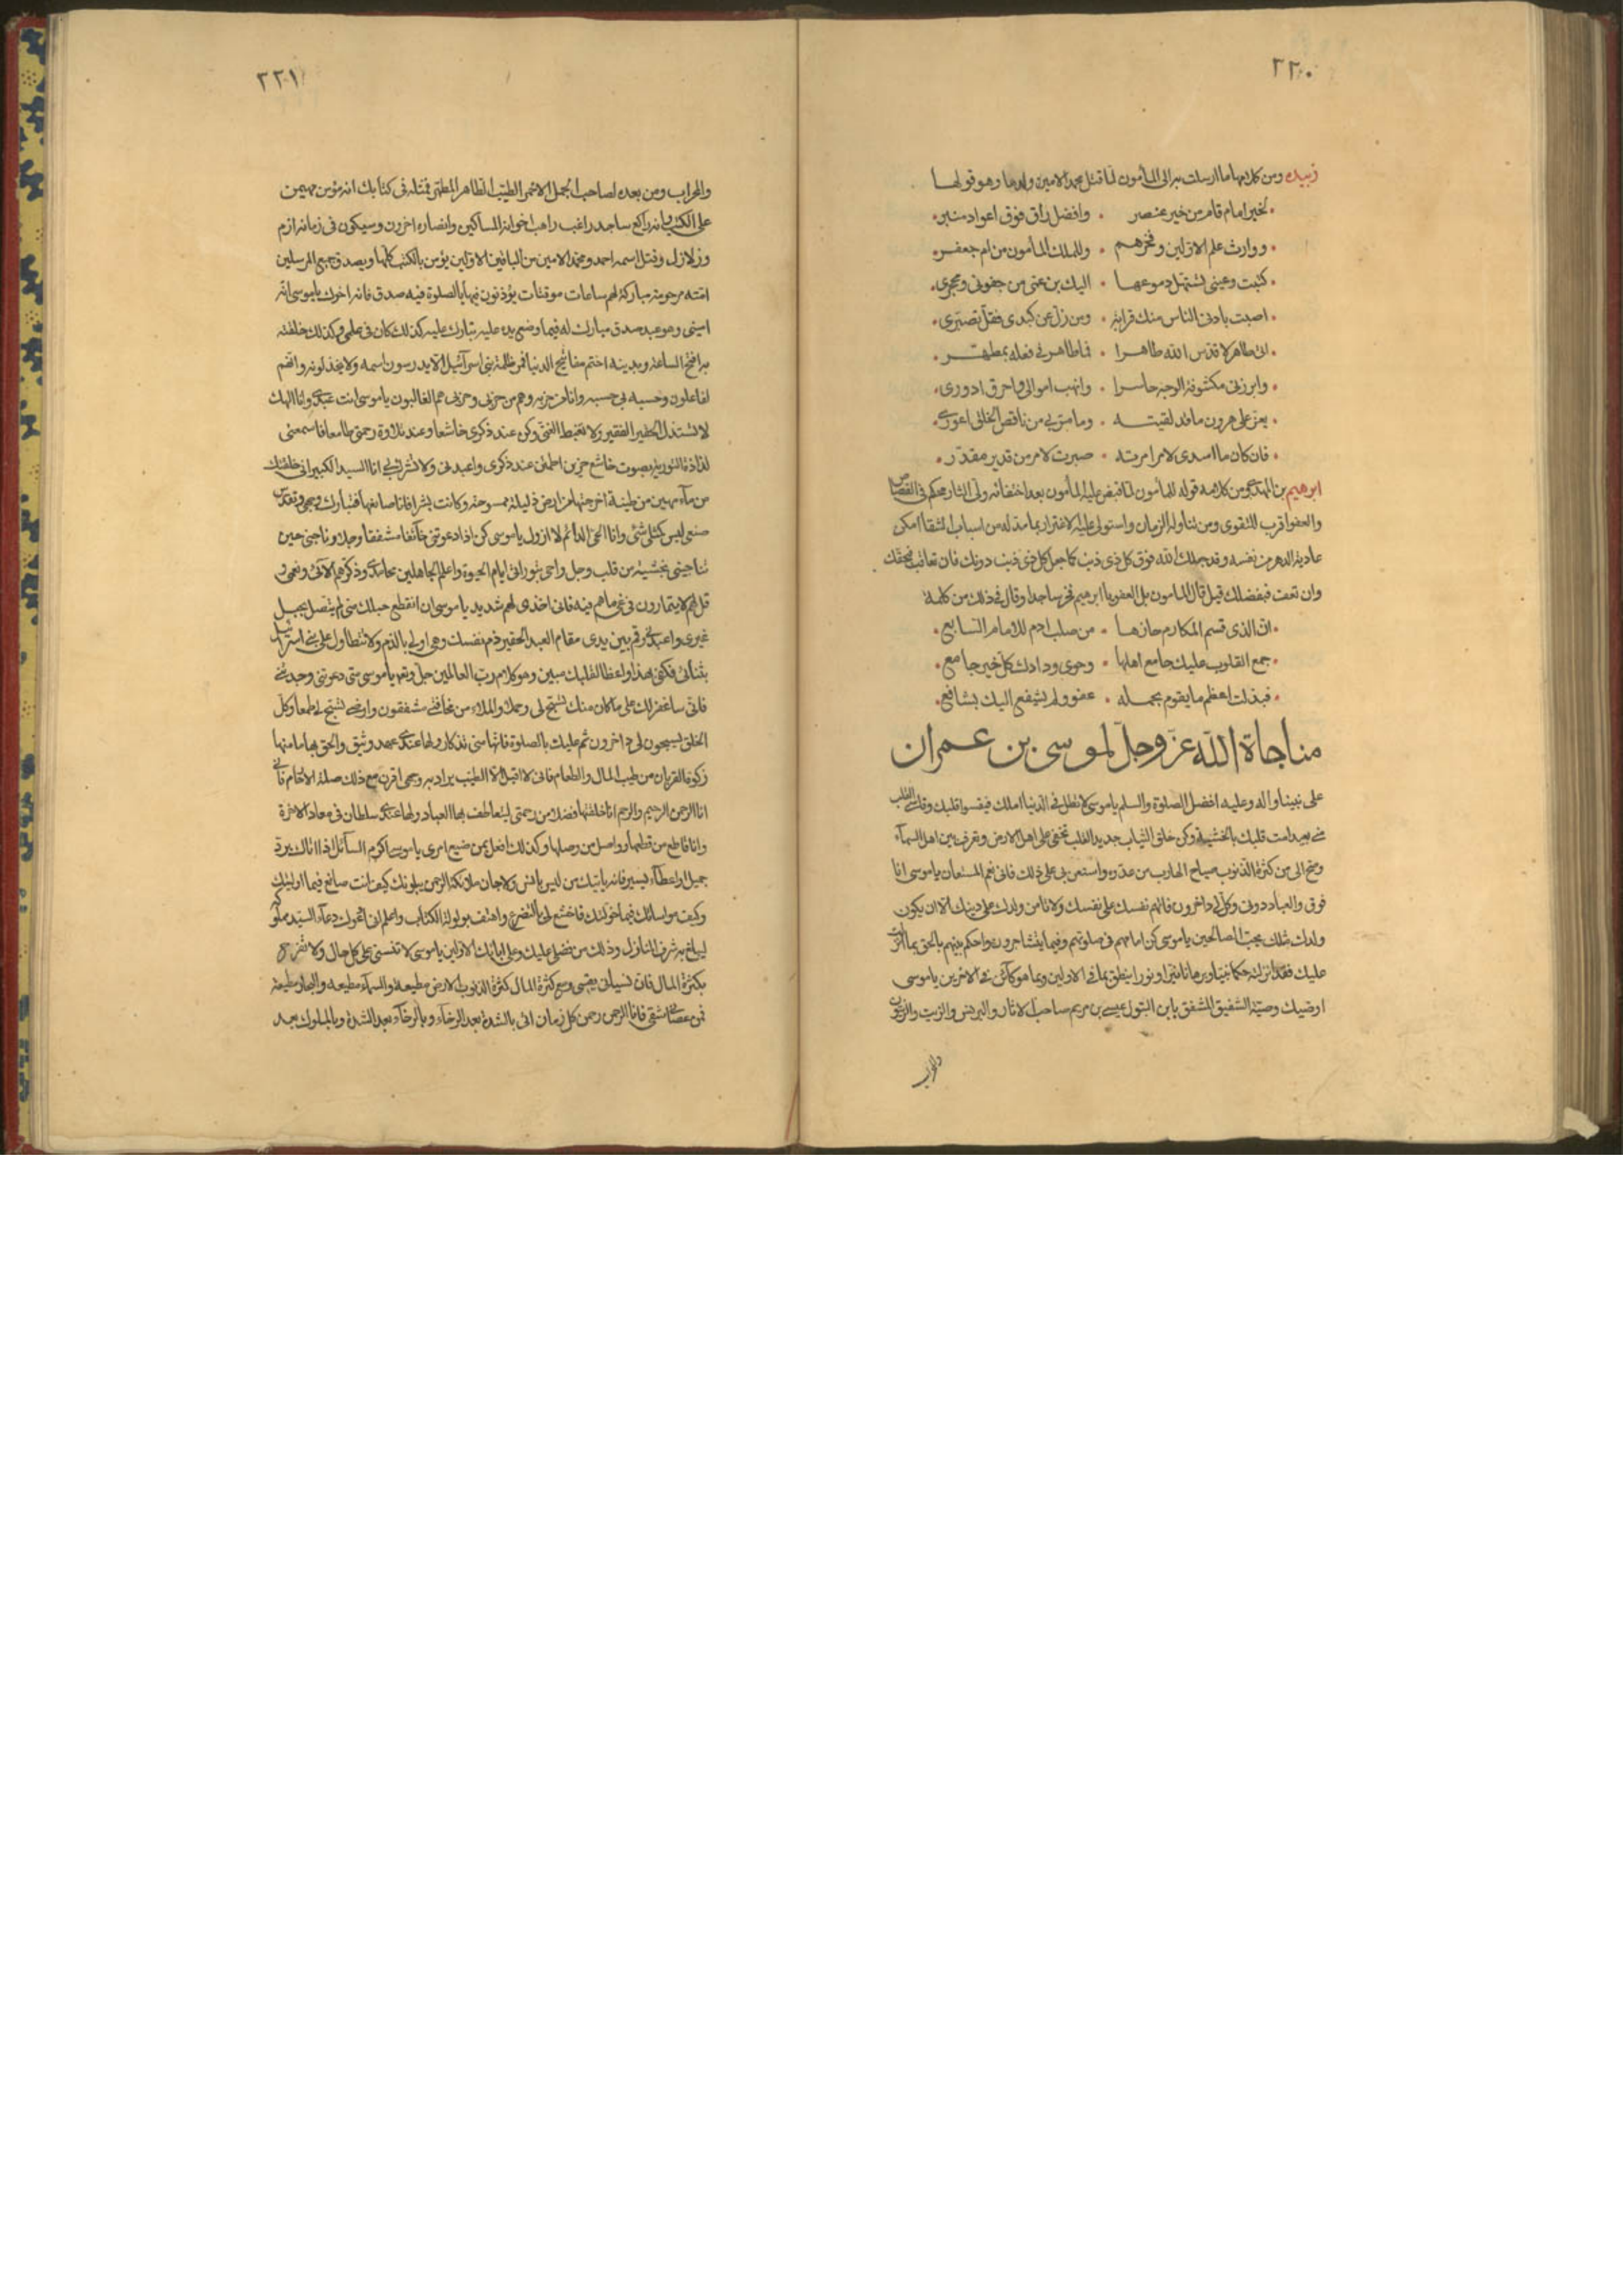 ٢٢٠
زبيده ومن كلامها ما ارسلت به الى المأمون لما قتل محمد الامين ولدها وهو قولها
لخير امام قام من خير عنصر • وافضل راق فوق اعواد منبر
ووارث علم الاولين وفخرهم • وللملك المأمون من ام جعفر
كتبت وعيني تستهل دموعها • اليك بن عمي من جفوني ومحجري
اصبت بادنى الناس منك قرابة • ومن زل عن كبدي فقل تصبري
اتى طاهر لا قدس الله طاهرا • فما طاهر في فعله بمطهر
وابرزني مكشوفة الوجه حاسرا • وانهب اموالي واحرق ادوري
يعز على هرون ما قد لقيته • وما مر بي من ناقص الخلق اعور
فان كان ما اسدى لامر امرته • صبرت لامر من قدير مقدر
ابرهيم بن المهدي ومن كلامه قوله للمأمون لما قبض عليه المأمون بعد اختفائه ولي الثار محكم في القصاص
والعفو اقرب للتقوى ومن تناوله الزمان واستولى عليه الاغترار بما مد له من اسباب الشقا امكن
عادية الدهر من نفسه وقد جعلك الله فوق كل ذي ذنب كما جعل كل ذي ذنب دونك فان تعاقب فبحقك
وان تعف فبفضلك قيل قال المامون بل العفو يا ابرهيم فخر ساجدا وقال في ذلك من كلمة
ان الذي قسم المكارم حازها • من صلب ادم للامام السابع
جمع القلوب عليك جامع اهلها • وحوى ودادك كل خير جامع
فبذلت اعظم ما يقوم بحمله • عفو ولم يشفع اليك بشافع
مناجاة الله عز وجل لموسى بن عمران
على نبينا واله وعليه افضل الصلوة والسلم ياموسى لا تطل في الدنيا املك فيقسوا قلبك وقاسي القلب
مني بعيد امت قلبك بالخشية وكن خلق الثياب جديد القلب تخفى على اهل الارض وتعرف بين اهل السماء
وصح الي من كثرة الذنوب صياح الهارب من عدوه واستعن بي على ذلك فاني نعم المستعان ياموسى انا
فوق والعباد دوني وكل لي داخرون فاتهم نفسك على نفسك ولا تامن ولدك على دينك الا ان يكون
ولدك مثلك يحب الصالحين ياموسى كن امامهم في صلوتهم وفيما يتشاجرون واحكم بينهم بالحق بما انزلت
عليك فقد انزلته حكما بينا وبرهانا نيرا ونورا ينطق بما في الاولين وبما هو كائن في الاخرين ياموسى
اوصيك وصية الشفيق المشفق بابن البتول عيسى بن مريم صاحب الاتان والبرنس والزيت والزيتون
والمحراب
٢٢١
والمحراب ومن بعده لصاحب الجمل الاحمر الطيب الطاهر المطهر فمثله في كتابك انه مؤمن مهيمن
على الكتب وانه راكع ساجد راغب راهب اخوانه المساكين وانصاره اخرون وسيكون في زمانه ازم
وزلازل وقتل اسمه احمد ومحمد الامين من الباقين الاولين يؤمن بالكتب كلها ويصدق جميع المرسلين
امته مرحومة مباركة لهم ساعات موقتات يؤذنون فيها بالصلوة فبه صدق فانه اخوك ياموسى انه
اميني وهو عبد صدق مبارك له فيما وضع يده عليه نبارك عليه كذلك كان في علمي وكذلك خلقته
به افتح الساعة وبدينه اختم مفاتيح الدنيا فمر ظلمة بني اسرائيل الا يدرسون اسمه ولا يخذلونه وانهم
لفاعلون وحسبه لي حسبه وانا من حزبه وهو من حزبي وحزبي هم الغالبون ياموسى انت عبدي وانا الهك
لا تستذل الحقير الفقير ولا تغبط الغني وكن عند ذكري خاشعا وعند تلاوة رحمتي طامعا فاسمعني
لذاذة التورية بصوت خاشع حزين اطمئن عند ذكري واعبدني ولا تشرك بي انا السيد الكبير اني خلقتك
من ماء مهين من طينة اخرجتها من ارض ذليلة ممسوحة وكانت بشرا فانا صانعها فتبارك وجهي وتقدس
صنعي ليس كمثلي شئ وانا الحي الدائم لا ازول ياموسى كن اذا دعوتني خائفا مشفقا وجلا وناجني حين
تناجيني بخشية من قلب وجل واحي بتوراتي ايام الحيوة واعلم الجاهلين محامدي وذكرهم الائي ونعمي و
قل لهم لا يتمارون في غي ما هم فيه فاني اخذي لهم شديد ياموسى ان انقطع حبلك مني لم يتصل بحبل
غيري واعبدني وقم بين يدي مقام العبد الحقير ذم نفسك وهي اولى بالذم ولا تتطاول على بني اسرائيل
بثنائي فكفى بهذا واعظا لقلبك مبين وهو كلام رب العالمين جل وتعه ياموسى متى دعوتني وجدتني
فاني ساغفر لك على ما كان منك تسبح لي وحدك والملاء من مخافتي مشفقون وارضي تسبح لي طمعا وكل
الخلق يسبحون لي داخرون ثم عليك بالصلوة فانها مني تذكار ولها عندي عهد وثيق والحق بها ما منها
زكوة القربان من طيب المال والطعام فاني لا اقبل الا الطيب يراد به وجهي اقرن مع ذلك صلة الارحام فاني
انا الرحمن الرحيم والرحم انا خلقتها فضلا من رحمتي ليتعاطف بها العباد ولها عندي سلطان في معاد الاخرة
وانا قاطع من قطعها وواصل من وصلها وكذلك افعل بمن ضيع امري ياموسى اكرم السائل اذا اتاك برد
جميل او اعطاء يسير فانه ياتيك من ليس بانس ولا جان ملائكة الرحمن يبلونك كيف انت صانع فيما اوليتك
وكيف مواساتك فيما خولتك فاخشع لي بالتضرع واهتف بولولة الكتاب واعلم اني ادعوك دعاء السيد مملوكه
ليبلغ به شرف المنازل وذلك من فضلي عليك وعلى ابائك الاولين ياموسى لا تنسني على كل حال ولا تفرح
بكثرة المال فان نسياني يقسي ومع كثرة المال كثرة الذنوب الارض مطيعة والسماء مطيعة والبحار مطيعة
فمن عصاني شقي فانا الرحمن رحمن كل زمان اتي بالشدة بعد الرخاء وبالرخاء بعد الشدة وبالملوك بعد